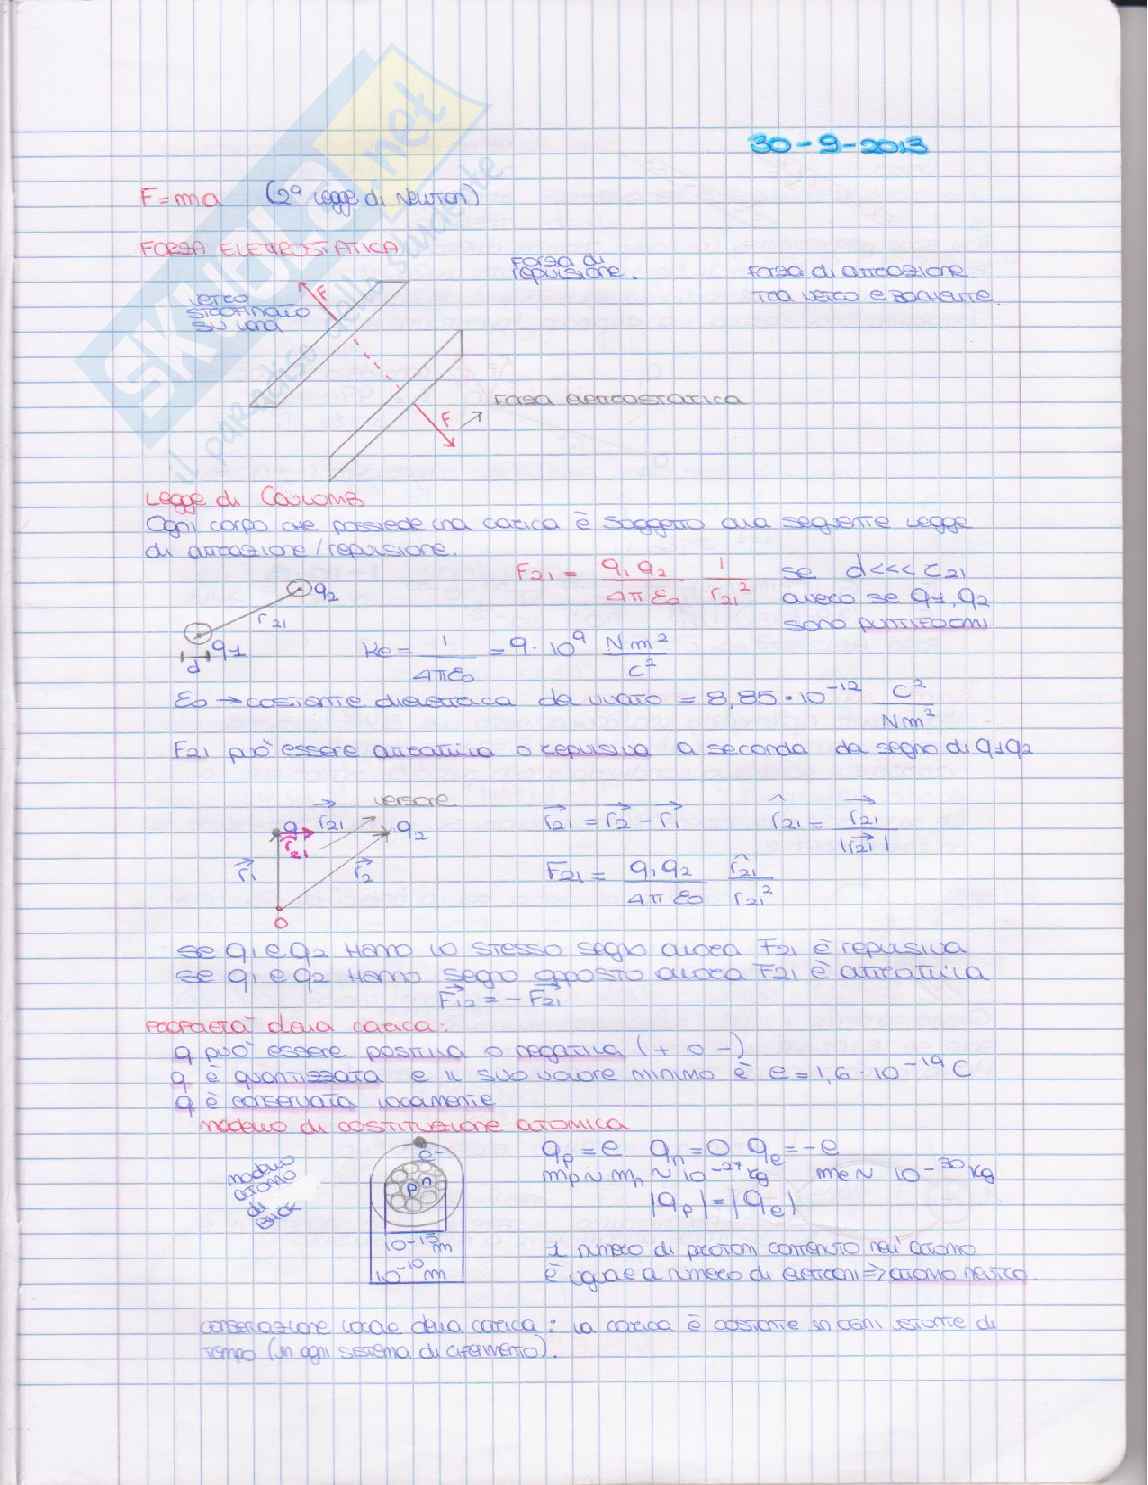 30-9-2013
F=ma (2ª legge di Newton)
FORZA ELETTROSTATICA
Forza di repulsione.
Forza di attrazione tra vetro e
vetro strofinato su lana
F
F
Forza elettrostatica
Legge di Coulomb
Ogni corpo che possiede una carica è soggetto alla seguente legge
di attrazione/repulsione.
F21 = q1 q2 / 4πε0 1 / r21²
se d<<< r21
ovvero se q1, q2
sono puntiformi
q2
r21
q1
d
Ke = 1 / 4πε0 = 9·10⁹ Nm² / C²
ε0 → costante dielettrica del vuoto = 8,85·10⁻¹² C² / Nm²
F21 può essere attrattiva o repulsiva a seconda del segno di q1 q2
versore
q r21 q2
r21
r1 r2
O
r21 = r2 - r1
r̂21 = r21 / |r21|
F21 = q1 q2 / 4πε0 r̂21 / r21²
se q1 e q2 hanno lo stesso segno allora F21 è repulsiva
se q1 e q2 hanno segno opposto allora F21 è attrattiva
F12 = -F21
Proprietà della carica:
q può essere positiva o negativa (+ o -)
q è quantizzata e il suo valore minimo è e=1,6·10⁻¹⁹ C
q è conservata localmente
modello di costituzione atomica
modello atomo di
e⁻
p n
10⁻¹⁵ m
10⁻¹⁰ m
qp = e qn = 0 qe = -e
mp ~ mn ~ 10⁻²⁷ kg me ~ 10⁻³⁰ kg
|qp| = |qe|
il numero di protoni contenuto nell'atomo
è uguale a numero di elettroni => atomo neutro.
conservazione locale della carica: la carica è costante in ogni istante di
tempo (in ogni sistema di riferimento).
SKUOLA.net
il paradiso dello studente